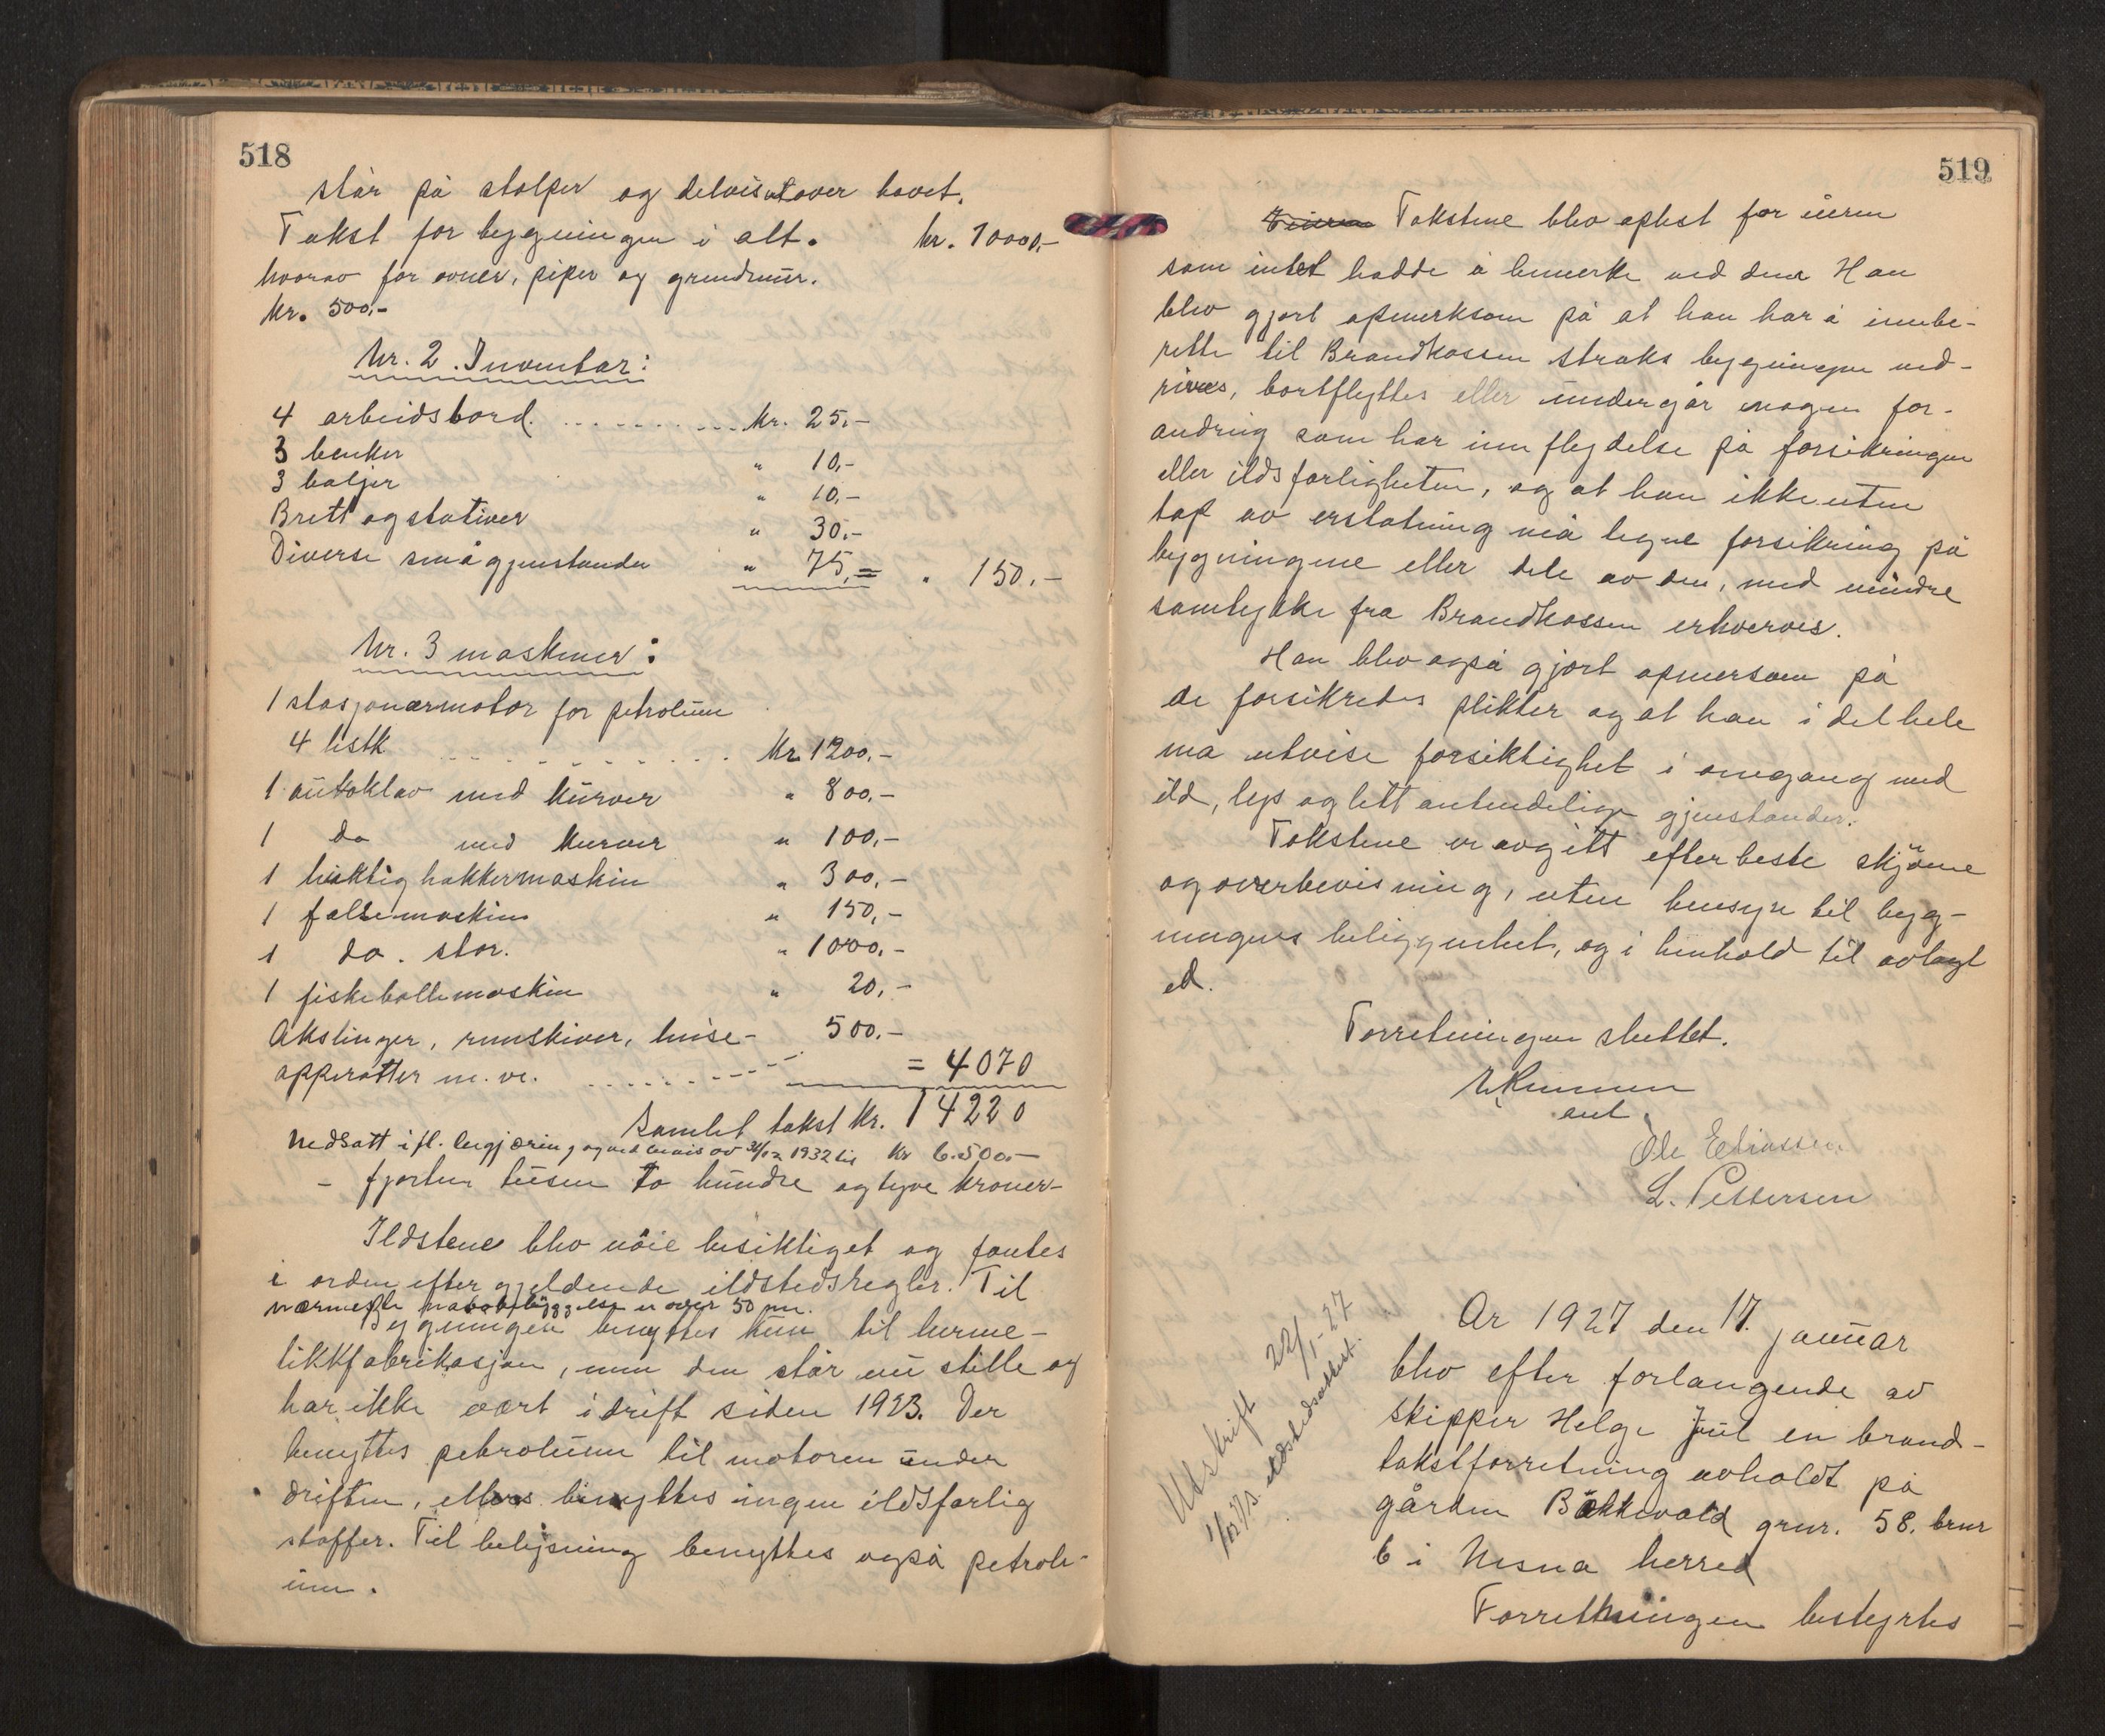 518
står på stolper og delvis utover havet.
Takst for bygningen i alt. kr. 10000,-
hvorav for ovner, piper og grundmur.
kr. 500,-
Nr. 2. Inventar:
4 arbeidsbord. kr. 25,-
3 benker " 10,-
3 baljer " 10,-
Brett og stativer " 30,-
Diverse smågjenstander " 75,= " 150,-
Nr. 3 maskiner:
1 stasjonærmotor for petroleum
4 hstk kr 1200,-
1 autoklav med kurver " 800,-
1 do med kurver " 100,-
1 hakkermaskin " 300,-
1 falsemaskin " 150,-
1 do. stor. " 1000,-
1 fiskebollemaskin " 20,-
Akslinger, remskiver, heise- 500,-
apperatter m.v. = 4070
Samlet takst kr. 14220
Nedsatt ifl. begjæring og ved bevis av 31/12 1932 til kr 6.500.-
- fjorten tusen to hundre og tyve kroner-
Ildstene blev nöie besiktiget og fantes
i orden efter gjeldende ildstedsregler. Til
nærmeste nabobebyggelse er over 50 m.
Bygningen benyttes kun til herme-
tikkfabrikasjon, men den står nu stille og
har ikke vært i drift siden 1923. Der
benyttes petroleum til motoren under
driften, ellers benyttes ingen ildsfarlig
stoffer. Til belysning benyttes også petrole-
um.
519
Takstene blev oplest for
som intet hadde å bemerke ved dem Han
blev gjort opmerksom på at han har å innbe-
rette til Brandkassen straks bygningen ned-
rives, bortflyttes eller undergår nogen for-
andring som har innflydelse på forsikringen
eller ildsfarligheten, og at han ikke uten
tap av erstatning må tegne forsikring på
bygningene eller dele av den, med mindre
samtykke fra Brandkassen erhverves.
Han blev også gjort opmersom på
de forsikredes plikter og at han i det hele
ma utvise forsiktighet i omgang med
ild, lys og lett antendelige gjenstander.
Takstene er avgitt efter beste skjönn
og overbevisning, uten hensyn til byg-
ningens beliggenhet, og i henhold til avlagt
ed.
Forretningen sluttet.
Ole
L. Pettersen
Utskrift 22/1-27
ildstedsattest.
Ar 1927 den 17. januar
blev efter forlangende av
skipper Helge Juul en brand-
takstforretning avholdt på
gården Bækkevold grnr. 58. brnr
6 i Nesna herred
Forretningen bestyrtes